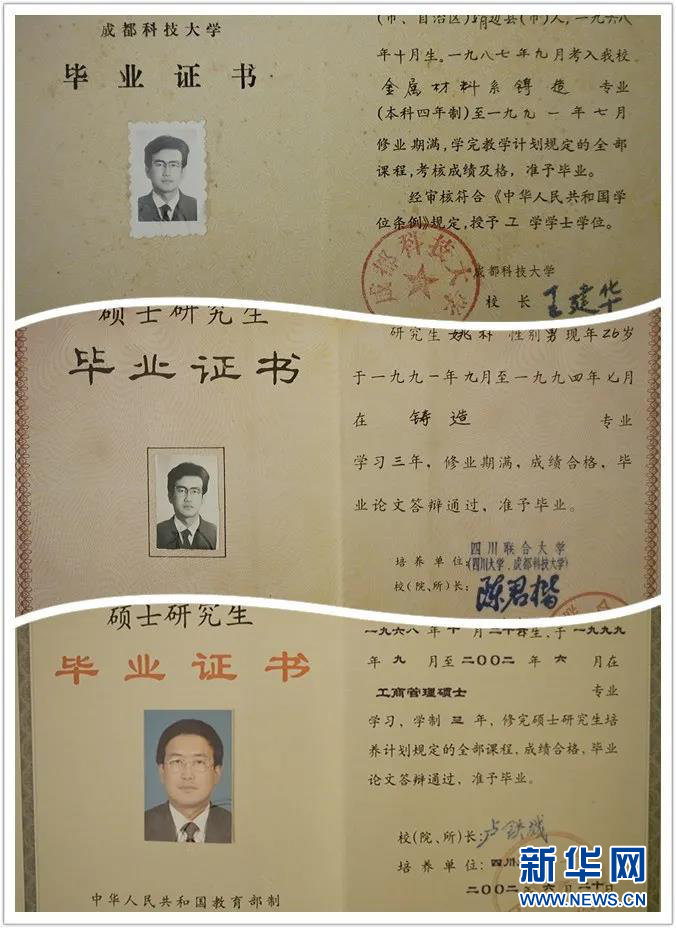 成都科技大学
毕业证书
(市、自治区)靖边县(市)人,一九六八
年十月生。一九八七年九月考入我校
金属材料系铸造 专业
(本科四年制)至一九九一年七月
修业期满,学完教学计划规定的全部
课程,考核成绩及格,准予毕业。
经审核符合《中华人民共和国学
位条例》规定,授予工学学士学位。
成都科技大学
成都科技大学
校 长 王建华
硕士研究生
毕业证书
研究生姚科 性别男现年26岁
于一九九一年九月至一九九四年七月
在 铸造 专业
学习三年,修业期满,成绩合格,毕
业论文答辩通过,准予毕业。
培养单位:四川联合大学
(四川大学、成都科技大学)
校(院、所)长:陈君楷
硕士研究生
毕业证书
中华人民共和国教育部制
一九六八年十月二十日生,于一九九九
年九月至二〇〇二年六月在
工商管理硕士 专业
学习,学制三年,修完硕士研究生培
养计划规定的全部课程,成绩合格,毕业
论文答辩通过,准予毕业。
校(院、所)长:卢铁城
培养单位:四川
二〇〇二年六月二十日
新华网
WWW.NEWS.CN